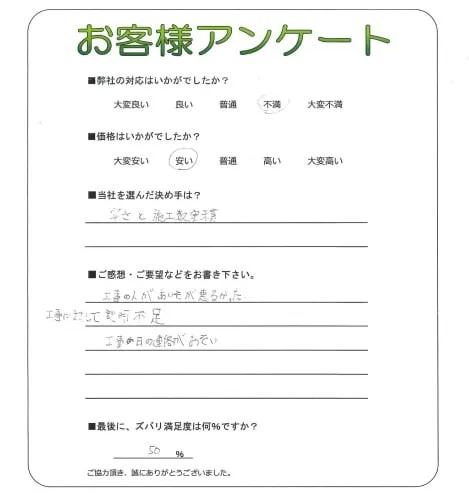 お客様アンケート
■弊社の対応はいかがでしたか？
大変良い 良い 普通 不満 大変不満
■価格はいかがでしたか？
大変安い 安い 普通 高い 大変高い
■当社を選んだ決め手は？
安さと施工数実積
■ご感想・ご要望などをお書き下さい。
工事の人があいそが悪るかった
工事に説明不足
工事の日の連絡がおそい
■最後に、ズバリ満足度は何%ですか？
50 %
ご協力頂き、誠にありがとうございました。